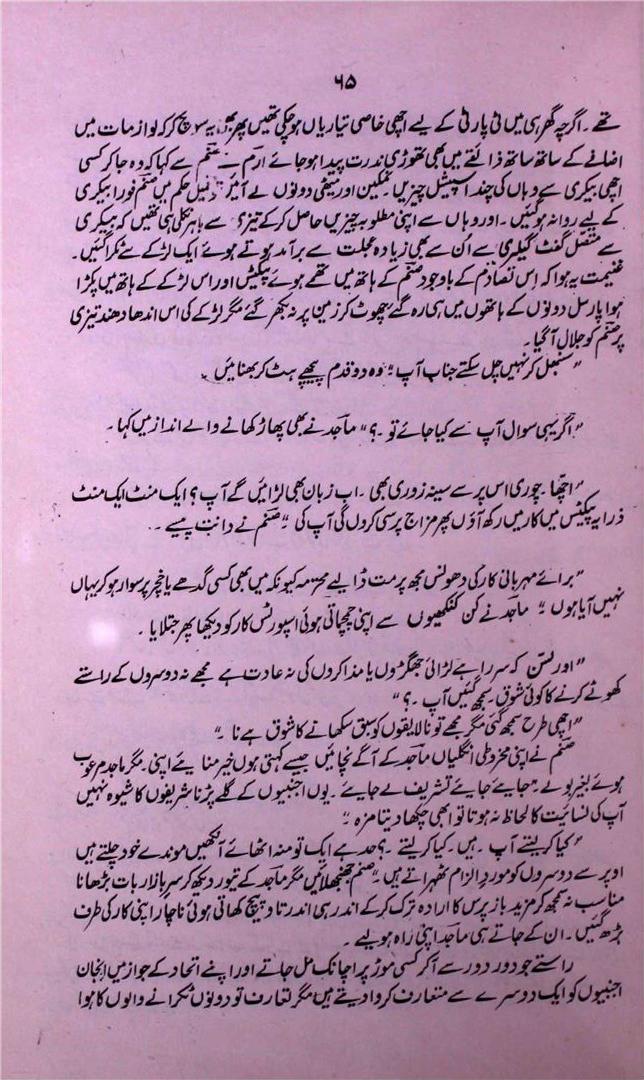 ۶۵
تھے۔ اگرچہ گھر ہی میں ٹی پارٹی کے لیے اچھی خاصی تیاریاں ہو چکی تھیں پھر بھی یہ سوچ کر کہ لوازمات میں
اضافے کے ساتھ ساتھ ذائقے میں بھی تھوڑی ندرت پیدا ہو جائے ارم نے صنم سے کہا کہ وہ جا کر کسی
اچھی بیکری سے وہاں کی چند اسپیشل چیزیں نمکین اور میٹھی دونوں لے آئیں۔ تعمیل حکم میں صنم فوراً بیکری
کے لیے روانہ ہو گئیں۔ اور وہاں سے اپنی مطلوبہ چیزیں حاصل کر کے تیزی سے باہر نکلی ہی تھیں کہ بیکری
سے متصل گفٹ گیلری سے اُن سے بھی زیادہ عجلت سے برآمد ہوتے ہوئے ایک لڑکے سے ٹکرا گئیں۔
غنیمت یہ ہوا کہ اِس تصادم کے باوجود صنم کے ہاتھ میں تھمے ہوئے پیکٹس اور اس لڑکے کے ہاتھ میں پکڑا
ہوا پارسل دونوں کے ہاتھوں میں ہی رہ گئے چھوٹ کر زمین پر نہ بکھر گئے مگر لڑکے کی اس اندھا دھند تیزی
پر صنم کو جلال آ گیا۔
"سنبھل کر نہیں چل سکتے جناب آپ" وہ دو قدم پیچھے ہٹ کر بھنائیں۔
"اگر یہی سوال آپ سے کیا جائے تو۔؟" ماجد نے بھی پھاڑ کھانے والے انداز میں کہا۔
"اچھا۔ چوری اس پر سے سینہ زوری بھی۔ اب زبان بھی لڑائیں گے آپ؟ ایک منٹ ایک منٹ
ذرا یہ پیکٹس میں کار میں رکھ آؤں پھر مزاج پرسی کروں گی آپ کی" صنم نے دانت پیسے۔
"برائے مہربانی کار کی دھونس مجھ پر مت ڈالیے محترمہ کیونکہ میں بھی کسی گدھے یا خچر پر سوار ہو کر یہاں
نہیں آیا ہوں" ماجد نے کن کنکھیوں سے اپنی چمچماتی ہوئی اسپورٹس کار کو دیکھا پھر جتلایا۔
"اور سن کہ سر راہے لڑائی جھگڑوں یا مذاکروں کی نہ عادت ہے مجھے نہ دوسروں کے راستے
کھوٹے کرنے کا کوئی شوق۔ سمجھ گئیں آپ۔؟"
"اچھی طرح سمجھ گئی مگر مجھے تو نالایقوں کو سبق سکھانے کا شوق ہے نا۔"
صنم نے اپنی مخروطی انگلیاں ماجد کے آگے نچائیں جیسے کہتی ہوں خیر منائیے اپنی۔ مگر ماجد مرعوب
ہوئے بغیر بولے "جایئے جایئے تشریف لے جایئے۔ یوں اجنبیوں کے گلے پڑنا شریفوں کا شیوہ نہیں
آپ کی نسائیت کا لحاظ نہ ہوتا تو ابھی چکھا دیتا مزہ۔"
"کیا کر لیتے آپ۔ ہیں۔ کیا کر لیتے۔؟ حد ہے ایک تو منہ اٹھائے آنکھیں موندے خود چلتے ہیں
اوپر سے دوسروں کو مورد الزام ٹھہراتے ہیں۔" صنم جھنجھلائیں مگر ماجد کے تیور دیکھ کر سر بازار بات بڑھانا
مناسب نہ سمجھ کر مزید باز پرس کا ارادہ ترک کر کے اندر ہی اندر تاؤ پیچ کھاتی ہوئی ناچار اپنی کار کی طرف
بڑھ گئیں۔ ان کے جاتے ہی ماجد اپنی راہ ہو لیے۔
راستے جو دور دور سے آ کر کسی موڑ پر اچانک مل جاتے اور اپنے اتحاد کے جواز میں انجان
اجنبیوں کو ایک دوسرے سے متعارف کروا دیتے ہیں مگر تعارف تو دونوں ٹکرانے والوں کا ہوا